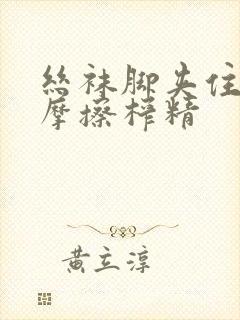 丝袜脚夹住
摩擦榨精
黄立淳